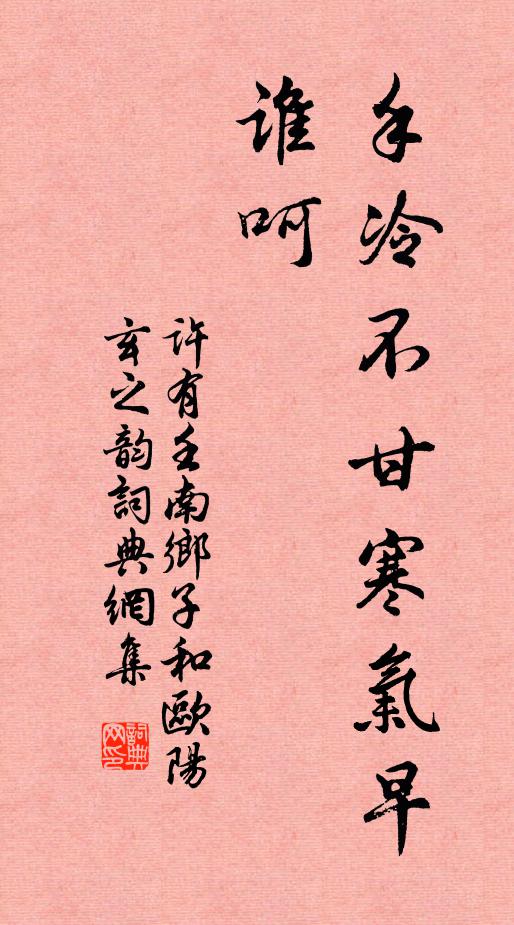 手冷不甘寒氣早
誰呵
許有壬南鄉子和歐陽
玄之韵詞典網集
詞典网印